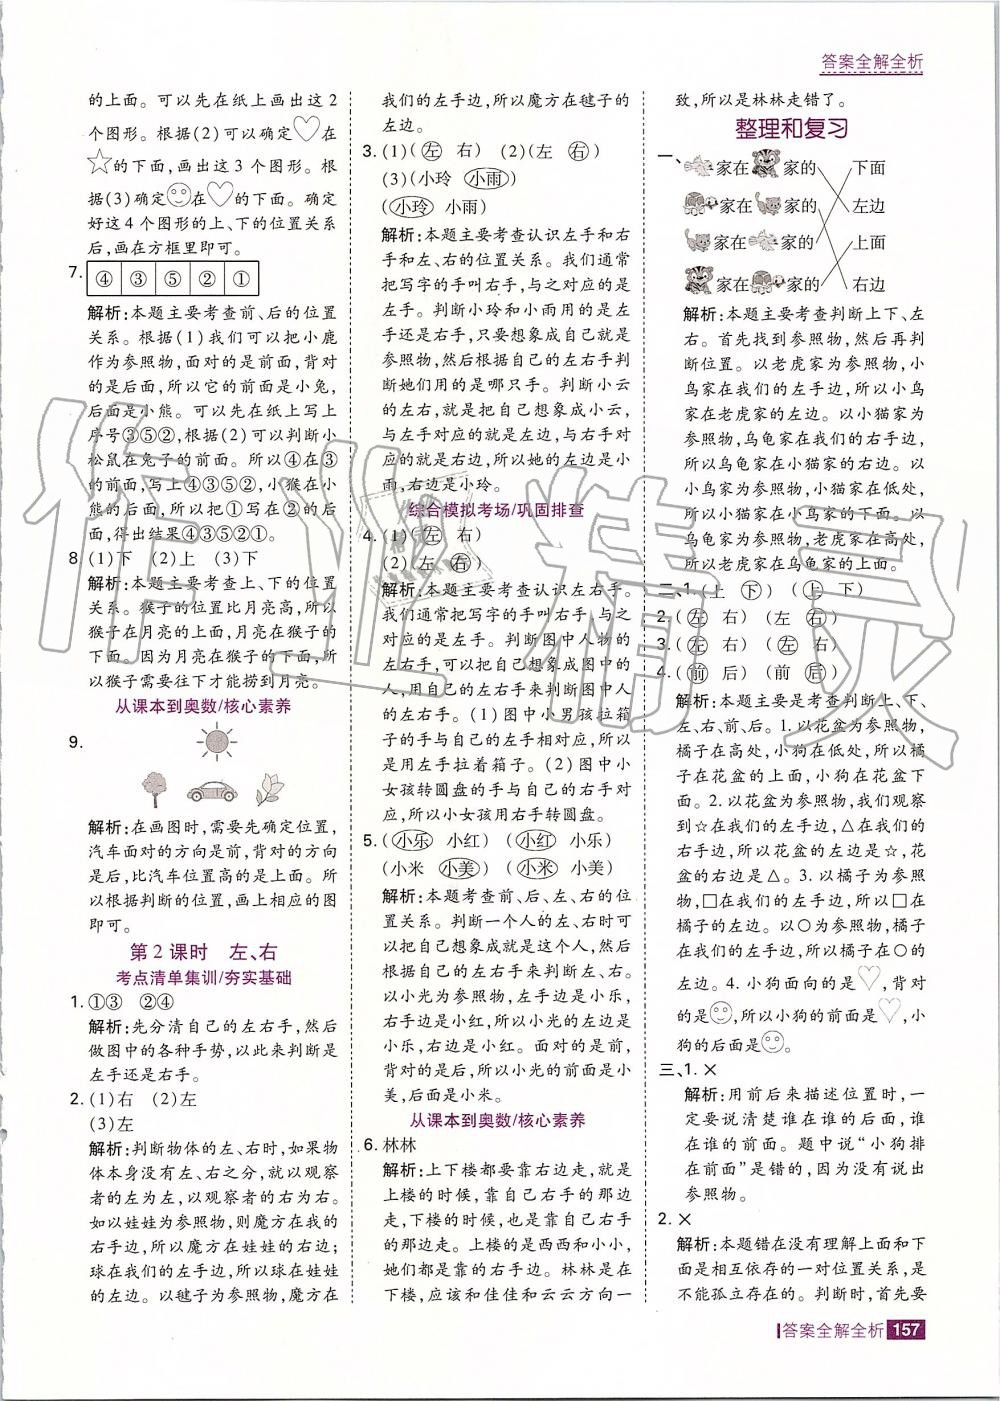 答案全解全析
的上面。可以先在纸上画出这2
个图形。根据(2)可以确定♡在
☆的下面,画出这3个图形。根
据(3)确定☺在♡的下面。确定
好这4个图形的上、下的位置关系
后,画在方框里即可。
7. ④ ③ ⑤ ② ①
解析:本题主要考查前、后的位置
关系。根据(1)我们可以把小鹿
作为参照物,面对的是前面,背对
的是后面,所以它的前面是小兔,
后面是小熊。可以先在纸上写上
序号③⑤②。根据(2)可以判断小
松鼠在兔子的前面。所以④在③
的前面,写上④③⑤②,小猴在小
熊的后面,所以把①写在②的后
面,得出结果④③⑤②①。
8 (1)下 (2)上 (3)下
解析:本题主要考查上、下的位置
关系。猴子的位置比月亮高,所以
猴子在月亮的上面,月亮在猴子的
下面。因为月亮在猴子的下面,所
以猴子需要往下才能捞到月亮。
从课本到奥数/核心素养
9.
解析:在画图时,需要先确定位置,
汽车面对的方向是前,背对的方向
是后,比汽车位置高的是上面。所
以根据判断的位置,画上相应的图
即可。
第2课时 左、右
考点清单集训/夯实基础
1. ①③ ②④
解析:先分清自己的左右手,然后
做图中的各种手势,以此来判断是
左手还是右手。
2. (1)右 (2)左
(3)左
解析:判断物体的左、右时,如果物
体本身没有左、右之分,就以观察
者的左为左,以观察者的右为右。
如以娃娃为参照物,则魔方在我的
右手边,所以魔方在娃娃的右边;
球在我们的左手边,所以球在娃娃
的左边。以毽子为参照物,魔方在
我们的左手边,所以魔方在毽子的
左边。
3. (1)(左 右) (2)(左 右)
(3)(小玲 小雨)
(小玲 小雨)
解析:本题主要考查认识左手和右
手和左、右的位置关系。我们通常
把写字的手叫右手,与之对应的是
左手。判断小玲和小雨用的是左
手还是右手,只要想象成自己就是
参照物,然后根据自己的左右手判
断她们用的是哪只手。判断小云
的左右,就是把自己想象成小云,
与左手对应的就是左边,与右手对
应的就是右边,所以她的左边是小
雨,右边是小玲。
综合模拟考场/巩固排查
4. (1)(左 右)
(2)(左 右)
解析:本题主要考查认识左右手。
我们通常把写字的手叫右手,与之
对应的是左手。判断图中人物的
左右手,可以把自己想象成图中的
人,用自己的左右手来判断图中人
的左右手。(1)图中小男孩拉箱
子的手与自己的左手相对应,所以
是用左手拉着箱子。(2)图中小
女孩转圆盘的手与自己的右手对
应,所以小女孩用右手转圆盘。
5. (小乐 小红) (小红 小乐)
(小米 小美) (小米 小美)
解析:本题考查前、后、左、右的位
置关系。判断一个人的左、右时可
以把自己想象成最中间的人,然后
根据自己的左右手来判断左、右。
以小光为参照物,左手边是小乐,
右手边是小红,所以小光的左边是
小乐,右边是小红。面对的是前,
背对的是后,所以小光的前面是小
美,后面是小米。
从课本到奥数/核心素养
6. 林林
解析:上下楼都要靠右边走,就是
上楼的时候,靠近自己右手的那边
走,下楼的时候,也是靠自己右手
的那边走。上楼的是西西和小小,
她们都是靠的右手边。林林是在
下楼,应该和佳佳和云云方向一
致,所以是林林走错了。
整理和复习
一、 家在 家的 下面
家在 家的 左边
家在 家的 上面
家在 家的 右边
解析:本题主要考查判断上下、左
右。首先找到参照物,然后再判
断位置。以老虎家为参照物,小
鸟家在我们的左手边,所以小鸟
家在老虎家的左边。以小猫家为
参照物,乌龟家在我们的右手边,
所以乌龟家在小猫家的右边。以
小鸟家为参照物,小猫家在低处,
所以小猫家在小鸟家的下面。以
乌龟家为参照物,老虎家在高处,
所以老虎家在乌龟家的上面。
二、1. (上 下) (上 下)
2. (左 右) (左 右)
3. (左 右) (左 右)
4. (前 后) (前 后)
解析:本题主要是考查判断上、下、
左、右、前、后。1. 以花盆为参照物,
橘子在高处,小狗在低处,所以橘
子在花盆的上面,小狗在花盆下
面。2. 以花盆为参照物,我们观察
到☆在我们的左手边,△在我们的
右手边,所以花盆的左边是☆,花
盆的右边是△。3. 以橘子为参照
物,□在我们的左手边,所以□在
橘子的左边。以○为参照物,橘子
在我们的左手边,所以橘子在○的
左边。4. 小狗面向的是♡,背对
的是☺,所以小狗的前面是♡,小
狗的后面是☺。
三、1. ×
解析:用前后来描述位置时,一
定要说清楚谁在谁的后面,谁
在谁的前面。题中说“小狗排
在前面”是错的,因为没有说出
参照物。
2. ×
解析:本题错在没有理解上面和下
面是相互依存的一对位置关系,是
不能孤立存在的。判断时,首先要
答案全解全析 157
作业精灵